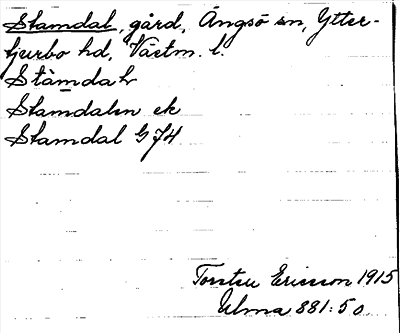 Stamdal, gård, Ängsö sn, Ytter-
tjurbo hd, Västm. l.
Stàmdaḷ
Stamdaln ek
Stamdal GJ4
Torsten Ericsson 1915
Ulma 881:50